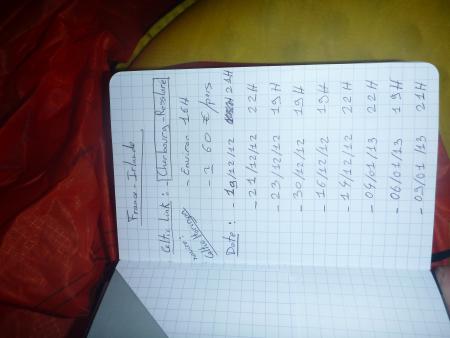 France - Irlande
Celtic Link : - Cherbourg - Rosslare
- Environ 16H
- 2 60 € /pers
navire :
Celtic Horizon
Date : - 19/12/12 21H
- 21/12/12 22H
- 23/12/12 19H
- 30/12/12 19H
- 16/12/12 19H
- 14/12/12 22H
- 04/01/13 22H
- 06/01/13 19H
- 09/01/13 21H